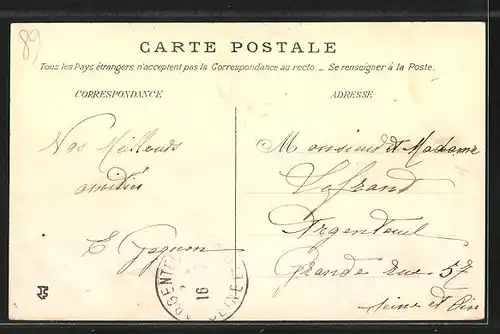 89
CARTE POSTALE
Tous les Pays étrangers n'acceptent pas la Correspondance au recto. _ Se renseigner à la Poste.
CORRESPONDANCE
ADRESSE
Nos Meilleurs
amitiés
E Gagnon
Monsieur et Madame
Lafrand
Argenteuil
Grande rue 57
Seine et Oise
ARGENTE
16